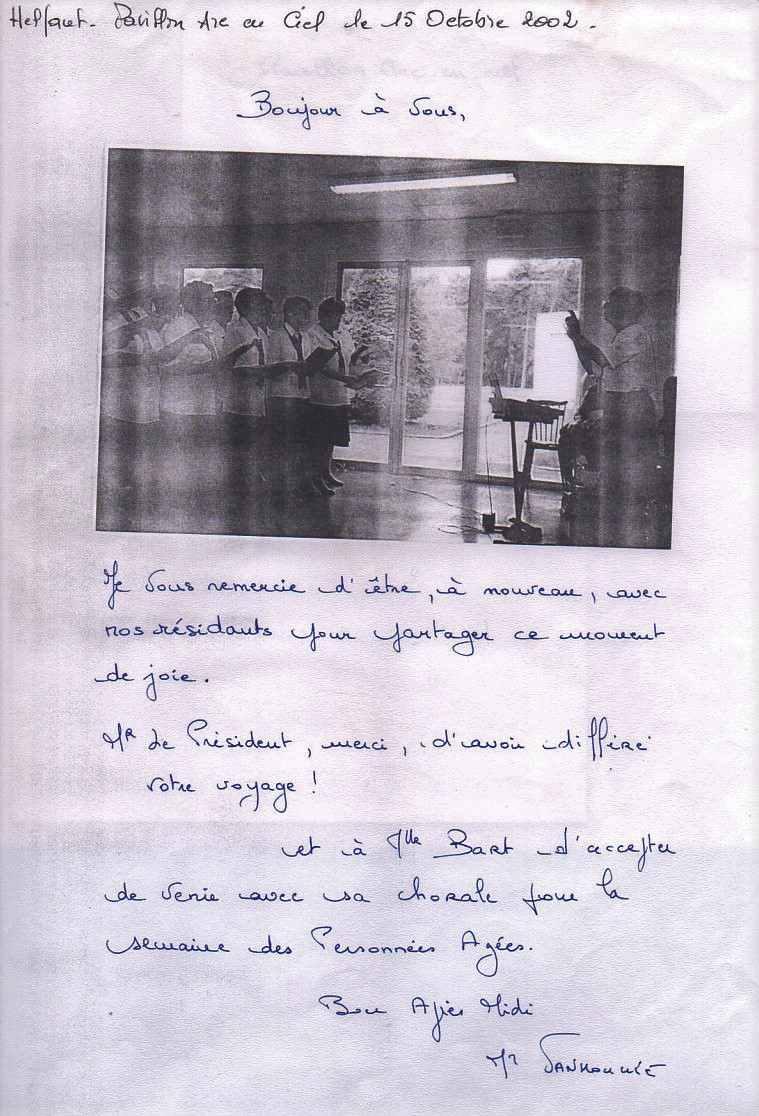 Helfaut. Pavillon Arc en Ciel le 15 Octobre 2002.
Bonjour à Vous,
Je vous remercie d'être, à nouveau, avec
nos résidants pour partager ce moment
de joie.
Mr Le Président, merci, d'avoir différé
votre voyage !
et à Mlle Bart d'accepter
de venir avec sa chorale pour la
semaine des Personnées Agées.
Bon Après Midi
Mr